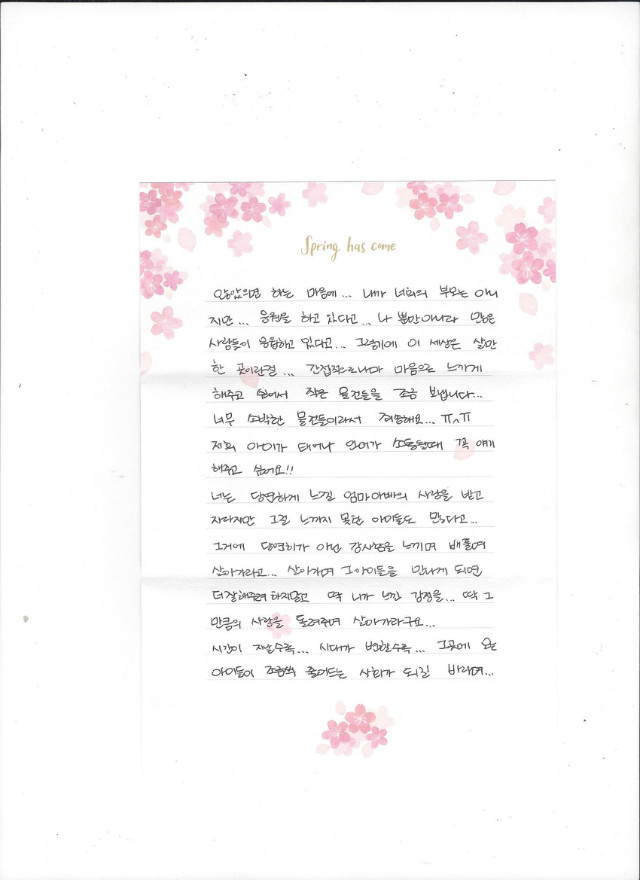 Spring has come
않았으면 하는 마음에... 내가 너희의 부모는 아니
지만... 응원을 하고 있다고... 나 뿐만아니라 많은
사람들이 응원하고 있다고... 그렇기에 이 세상은 살만
한 곳이란걸... 간접적으로나마 마음으로 느끼게
해주고 싶어서 작은 물건들을 조금 보냅니다...
너무 소박한 물건들이라서 죄송해요... ㅠ^ㅠ
저희 아이가 태어나 언어가 소통될때 꼭 얘기
해주고 싶어요!!
너는 당연하게 느낄 엄마아빠의 사랑을 받고
자라지만 그걸 느끼지 못한 아이들도 많다고...
그거에 당연히가 아닌 감사함을 느끼며 베풀며
살아가라고... 살아가며 그아이들을 만나게 되면
더잘해주려 하지말고 딱 니가 느낀 감정을... 딱 그
만큼의 사랑을 돌려주며 살아가라구요...
시간이 지날수록... 시대가 변할수록... 그곳에 오는
아이들이 조금씩 줄어드는 사회가 되길 바라며...